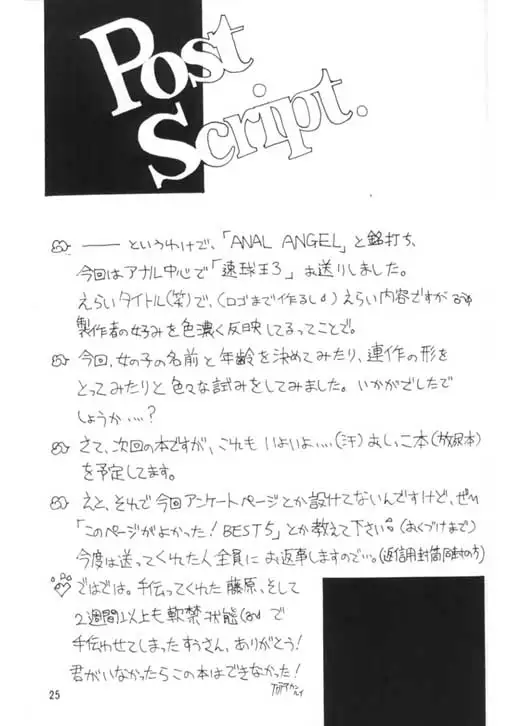 Post
Script.
――というわけで、「ANAL ANGEL」と銘打ち、
今回はアナル中心で「速球王3」お送りしました。
えらいタイトル(笑)で、(ロゴまで作るし)えらい内容ですが
製作者の好みを色濃く反映してるってことで。
今回、女の子の名前と年齢を決めてみたり、連作の形を
とってみたりと色々な試みをしてみました。いかがでしたで
しょうか‥‥?
さて、次回の本ですが、これも いよいよ‥‥(汗)おしっこ本(放尿本)
を予定してます。
えと、それで今回アンケートページとか設けてないんですけど、ぜひ
「このページがよかった!BEST5」とか教えて下さい。(おくづけまで)
今度は送ってくれた人全員にお返事しますので‥。(返信用封筒同封の方)
ではでは。手伝ってくれた藤原、そして
2週間以上も軟禁状態で
手伝わせてしまったすうさん、ありがとう!
君がいなかったらこの本はできなかった!
25